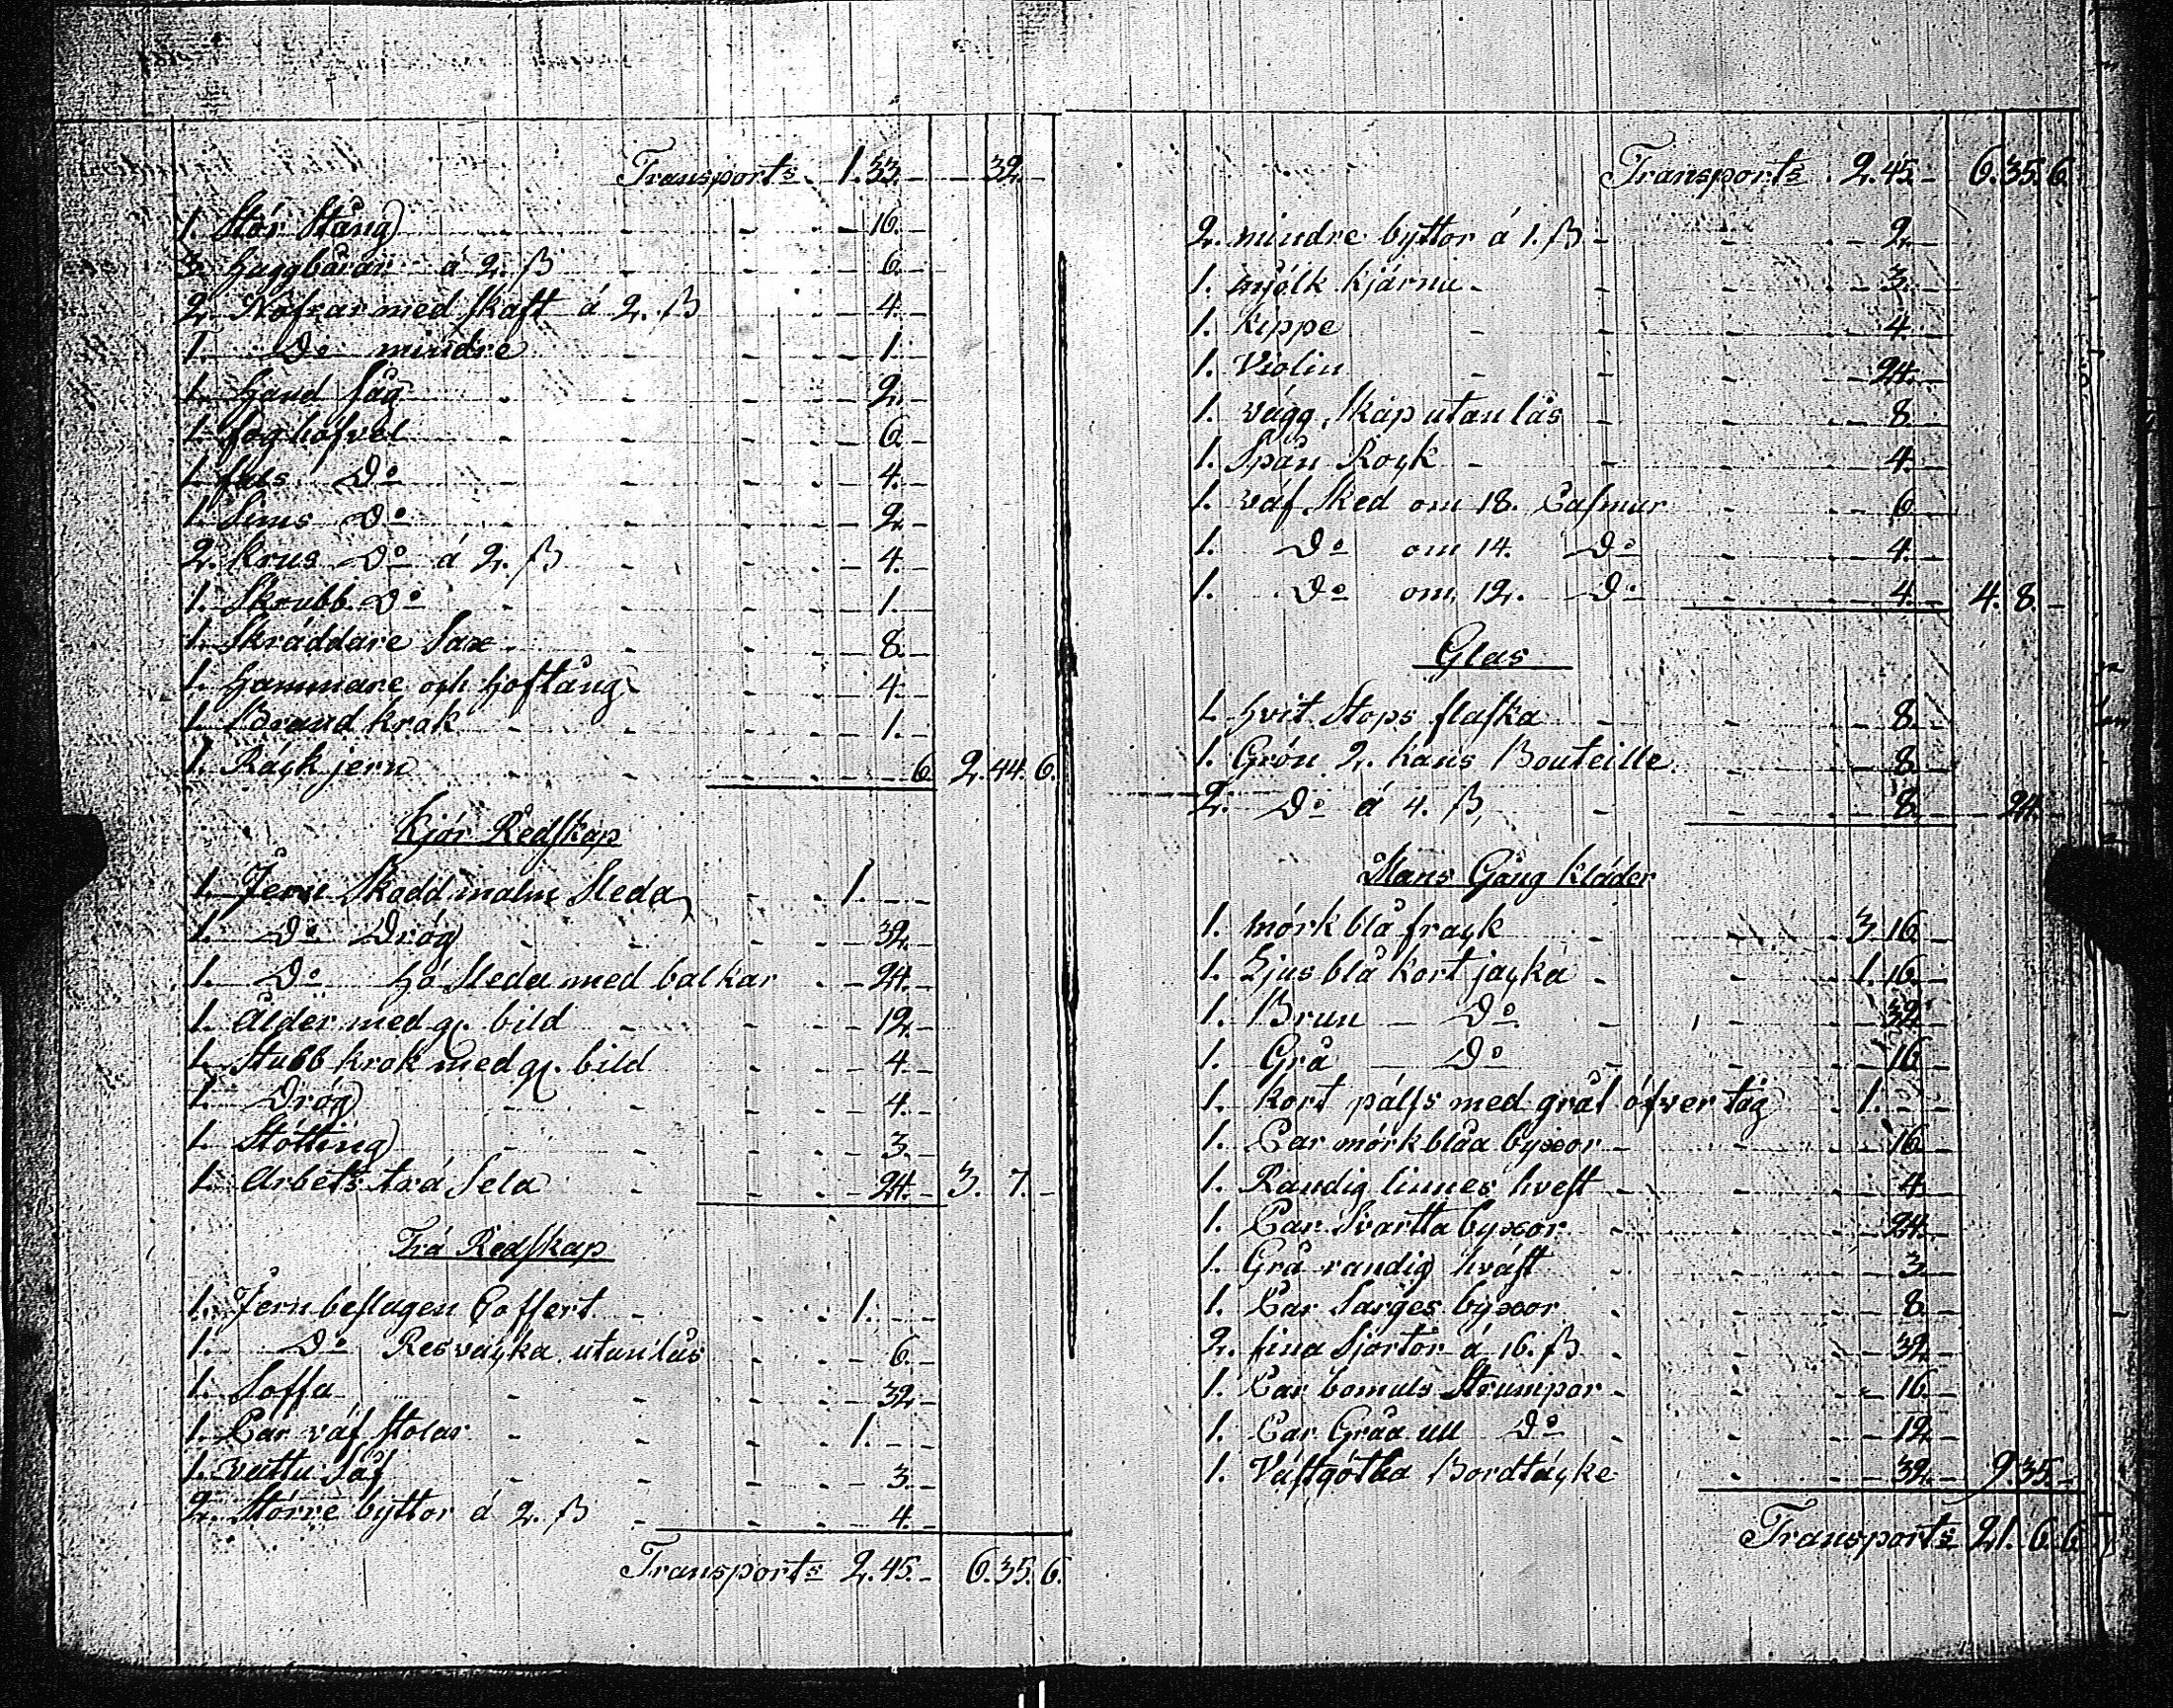 Transports 1.33.- 32.-
1. Stór Stång - 16.-
3. huggbårar á 2. ß - 6.-
2. Nafrar med skaft á 2. ß - 4.-
1. Do mindre - 1.-
1. Hand såg - 2.-
1. foghöfvel - 6.-
1. fals Do - 4.-
1. Sims Do - 2.-
2. krus Do á 2. ß - 4.-
1. Skrubb Do - 1.-
1. Skräddare Sax - 8.-
1. Hammare och hoftång - 4.-
1. Brand krok - 1.-
1. Räckjern - 6. 2.44.6.
Kjör Redskap
1. Jern Skodd malm Sleda 1.-.-
1. Do Drög - 32.-
1. Do hö Sleda med balkar - 24.-
1. Ålder med gl. bild - 12.-
1. Stubb krok med gl. bild - 4.-
1. Drög - 4.-
1. Stötting - 3.-
1. Arbets trä Sela - 24.- 3. 7.-
Trä Redskap
1. Jernbeslagen Coffert 1.-.-
1. Do Resväcka utan lås - 6.-
1. Soffa - 32.-
1. Par väf stolar 1.-.-
1. vattu Så - 3.-
2. Större byttor á 2. ß - 4.-
Transports 2.45.- 6.35.6.
Transports 2.45.- 6.35.6.
2. mindre byttor á 1. ß - 2.-
1. mjölk kjärna - 3.-
1. kippe - 4.-
1. Violin - 24.-
1. vägg skåp utan lås - 8.-
1. Spån Rock - 4.-
1. väf sked om 18. Pasmar - 6.-
1. Do om 14. Do - 4.-
1. Do om 12. Do - 4.- 4. 8.-
Glas
1. hvit Stops flaska - 8.-
1. Grön 2. kans Bouteille - 8.-
2. Do á 4. ß - 8.- 24.-
Mans Gång kläder
1. mörk blå frack 3.16.-
1. Ljus blå kort jacka 1.16.-
1. Brun - Do - 32.-
1. Grå - Do - 16.-
1. kort päls med gråt öfver tåg 1.-.-
1. Par mörk blåa byxor - 16.-
1. Randig linnes hvest - 4.-
1. Par Svartta byxor - 24.-
1. Grå randig hväst - 3.-
1. Par Sarges byxor - 8.-
2. fina Sjortor á 16. ß - 32.-
1. Par bomuls Strumpor - 16.-
1. Par Gråa ull Do - 12.-
1. Västgötha Bordtäcke - 32.- 9.35.-
Transports 21. 6. 6.